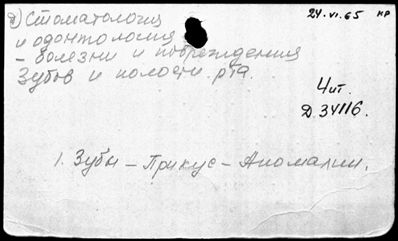 а) Стоматология
24.VI.65 нр
и одонтология
- болезни и повреждения
зубов и полости рта.
Чит.
Д.34116.
1. Зубы - Прикус - Аномалии.